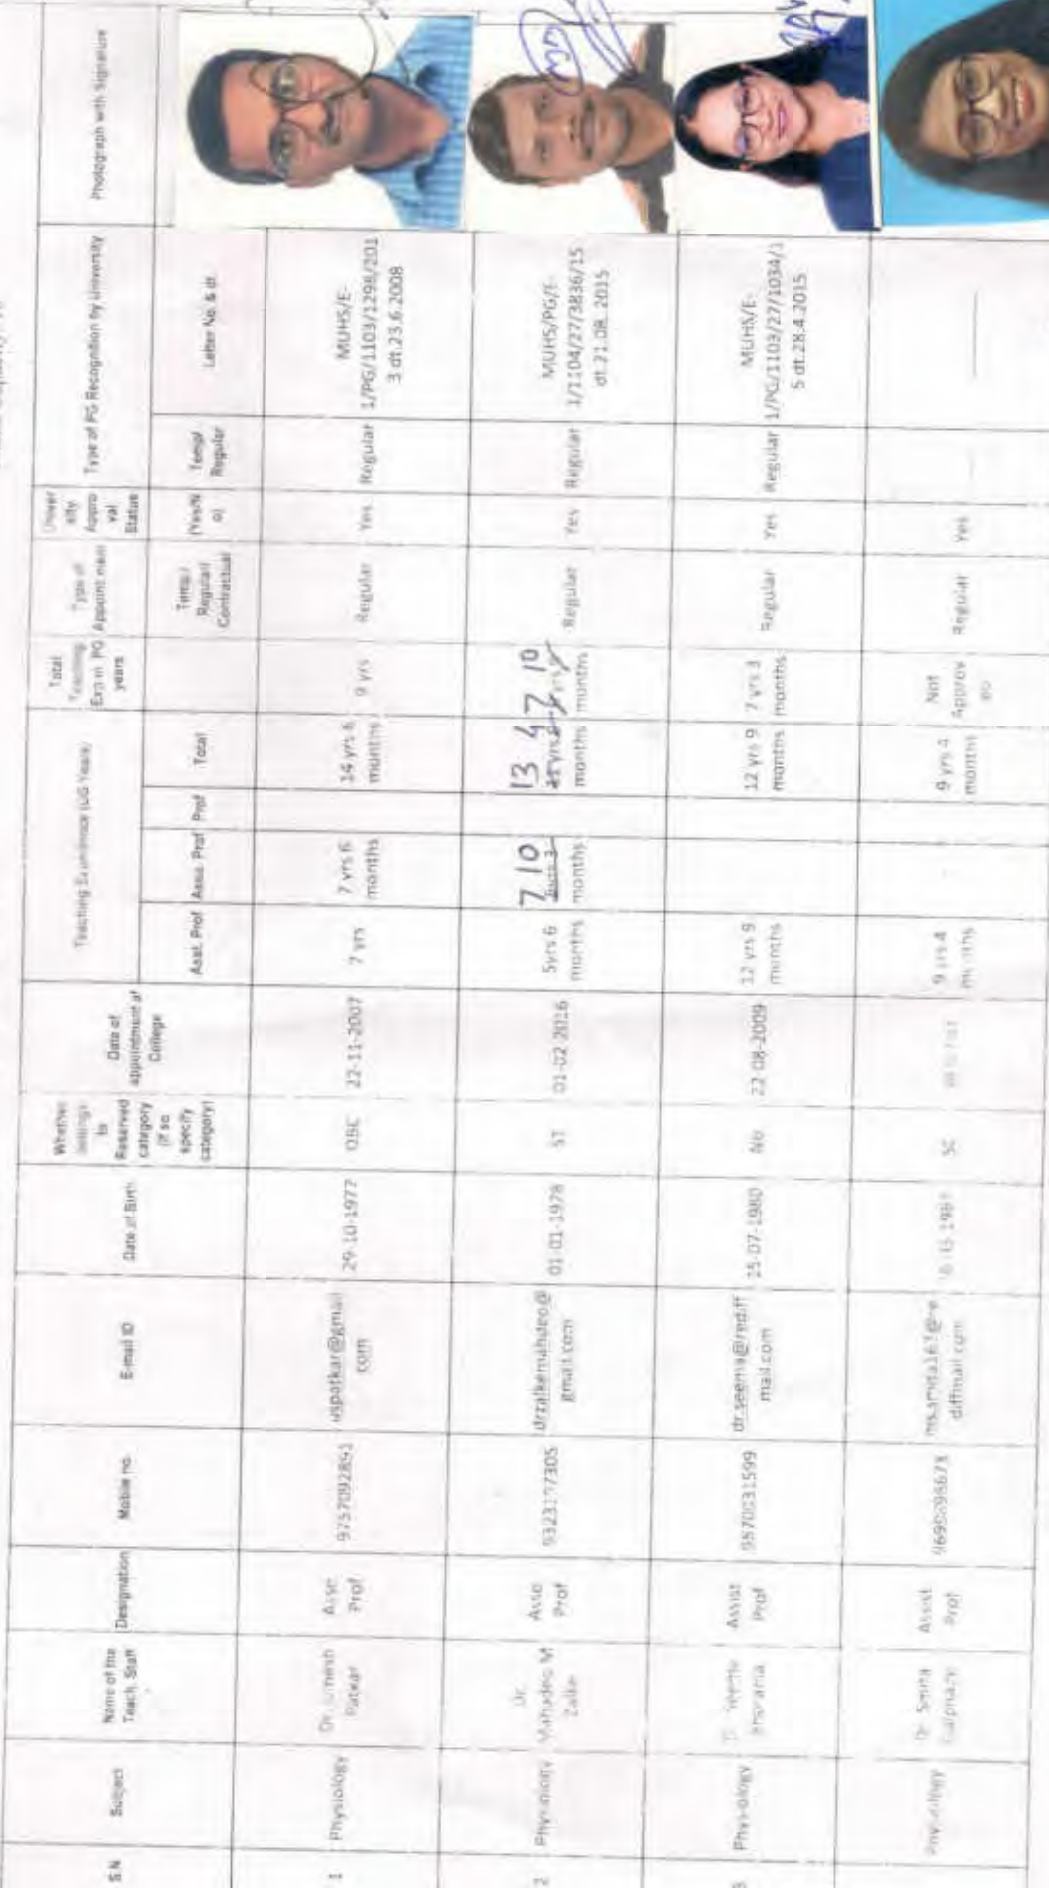 S.N
Subject
Name of the
Teach. Staff
Designation
Mobile no.
E-mail ID
Date of Birth
Whether
belongs
to
Reserved
category
(if so
specify
category)
Date of
appointment at
College
Teaching Experience (UG Years)
Asst. Prof
Asso. Prof
Prof
Total
Total
Teaching
Exp in PG
years
Type of
Appointment
Temp./
Regular/
Contractual
Univer
sity
Appro
val
Status
(Yes/N
o)
Type of PG Recognition by University
Temp/
Regular
Letter No. & dt.
Photograph with Signature
1
Physiology
Patkar
Asso
Prof
9757092891
uspatkar@gmail
com
29-10-1977
OBC
22-11-2007
7 yrs
7 yrs 6
months
14 yrs 6
months
9 yrs
Regular
Yes
Regular
MUHS/E-
1/PG/1103/1298/201
3 dt.23.6.2008
2
Physiology
Dr.
Mahadeo M
Zalke
Asso
Prof
drzalkemahdeo@
gmail.com
01-01-1978
ST
01-02 2016
5yrs 6
months
7 10
months
13 4
months
7 10
months
Regular
Yes
Regular
MUHS/PG/E-
1/1104/27/3836/15
dt.21.08. 2015
3
Physiology
Assist
Prof
9570031599
dr.seema@rediff
mail.com
15-07-1980
No
22-08-2009
12 yrs 9
months
12 yrs 9
months
7 yrs 3
months
Regular
Yes
Regular
MUHS/E-
1/PG/1103/27/1034/1
5 dt.28.4.2015
Physiology
Dr. Smita
Assist
Prof
diffmail.com
SC
9 yrs 4
months
9 yrs 4
months
Not
Approv
ed
Regular
Yes